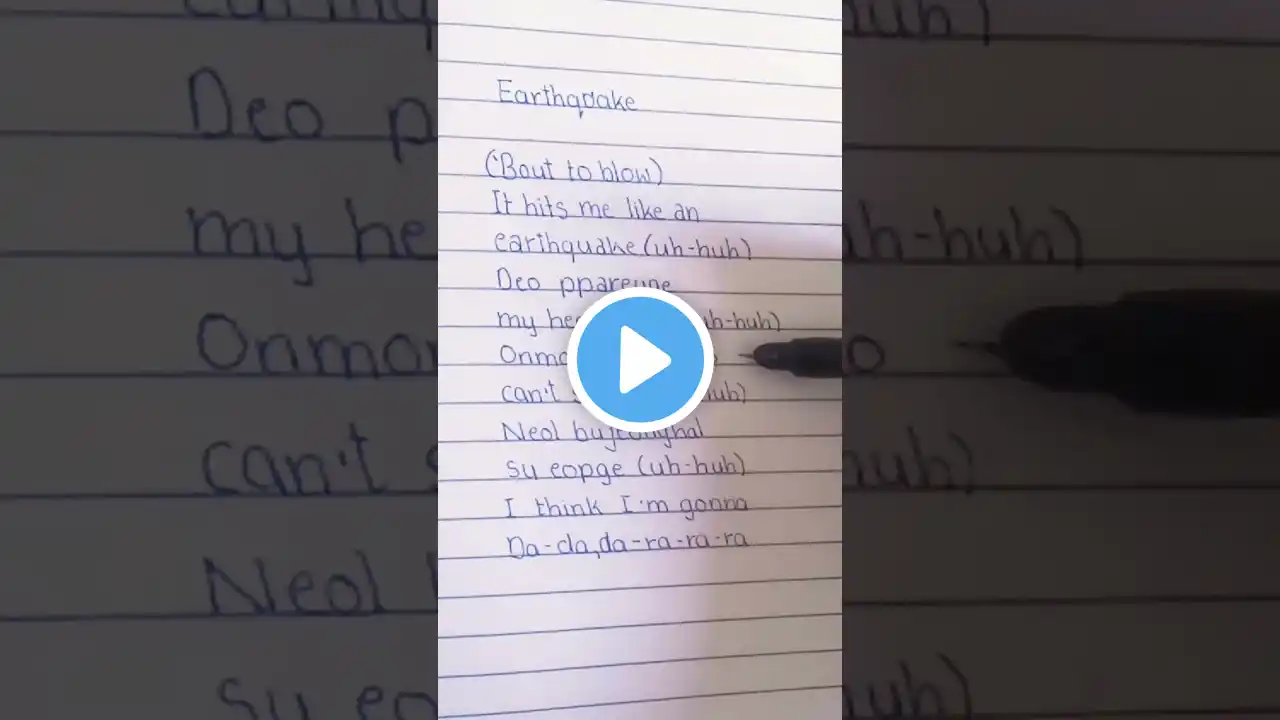 Earthquake
('Bout to blow)
It hits me like an
earthquake (uh-huh)
Deo ppareune
my uh-huh)
can't
Neol bujeonghal
su eopge (uh-huh)
I think I'm gonna
Da-da, da-ra-ra-ra